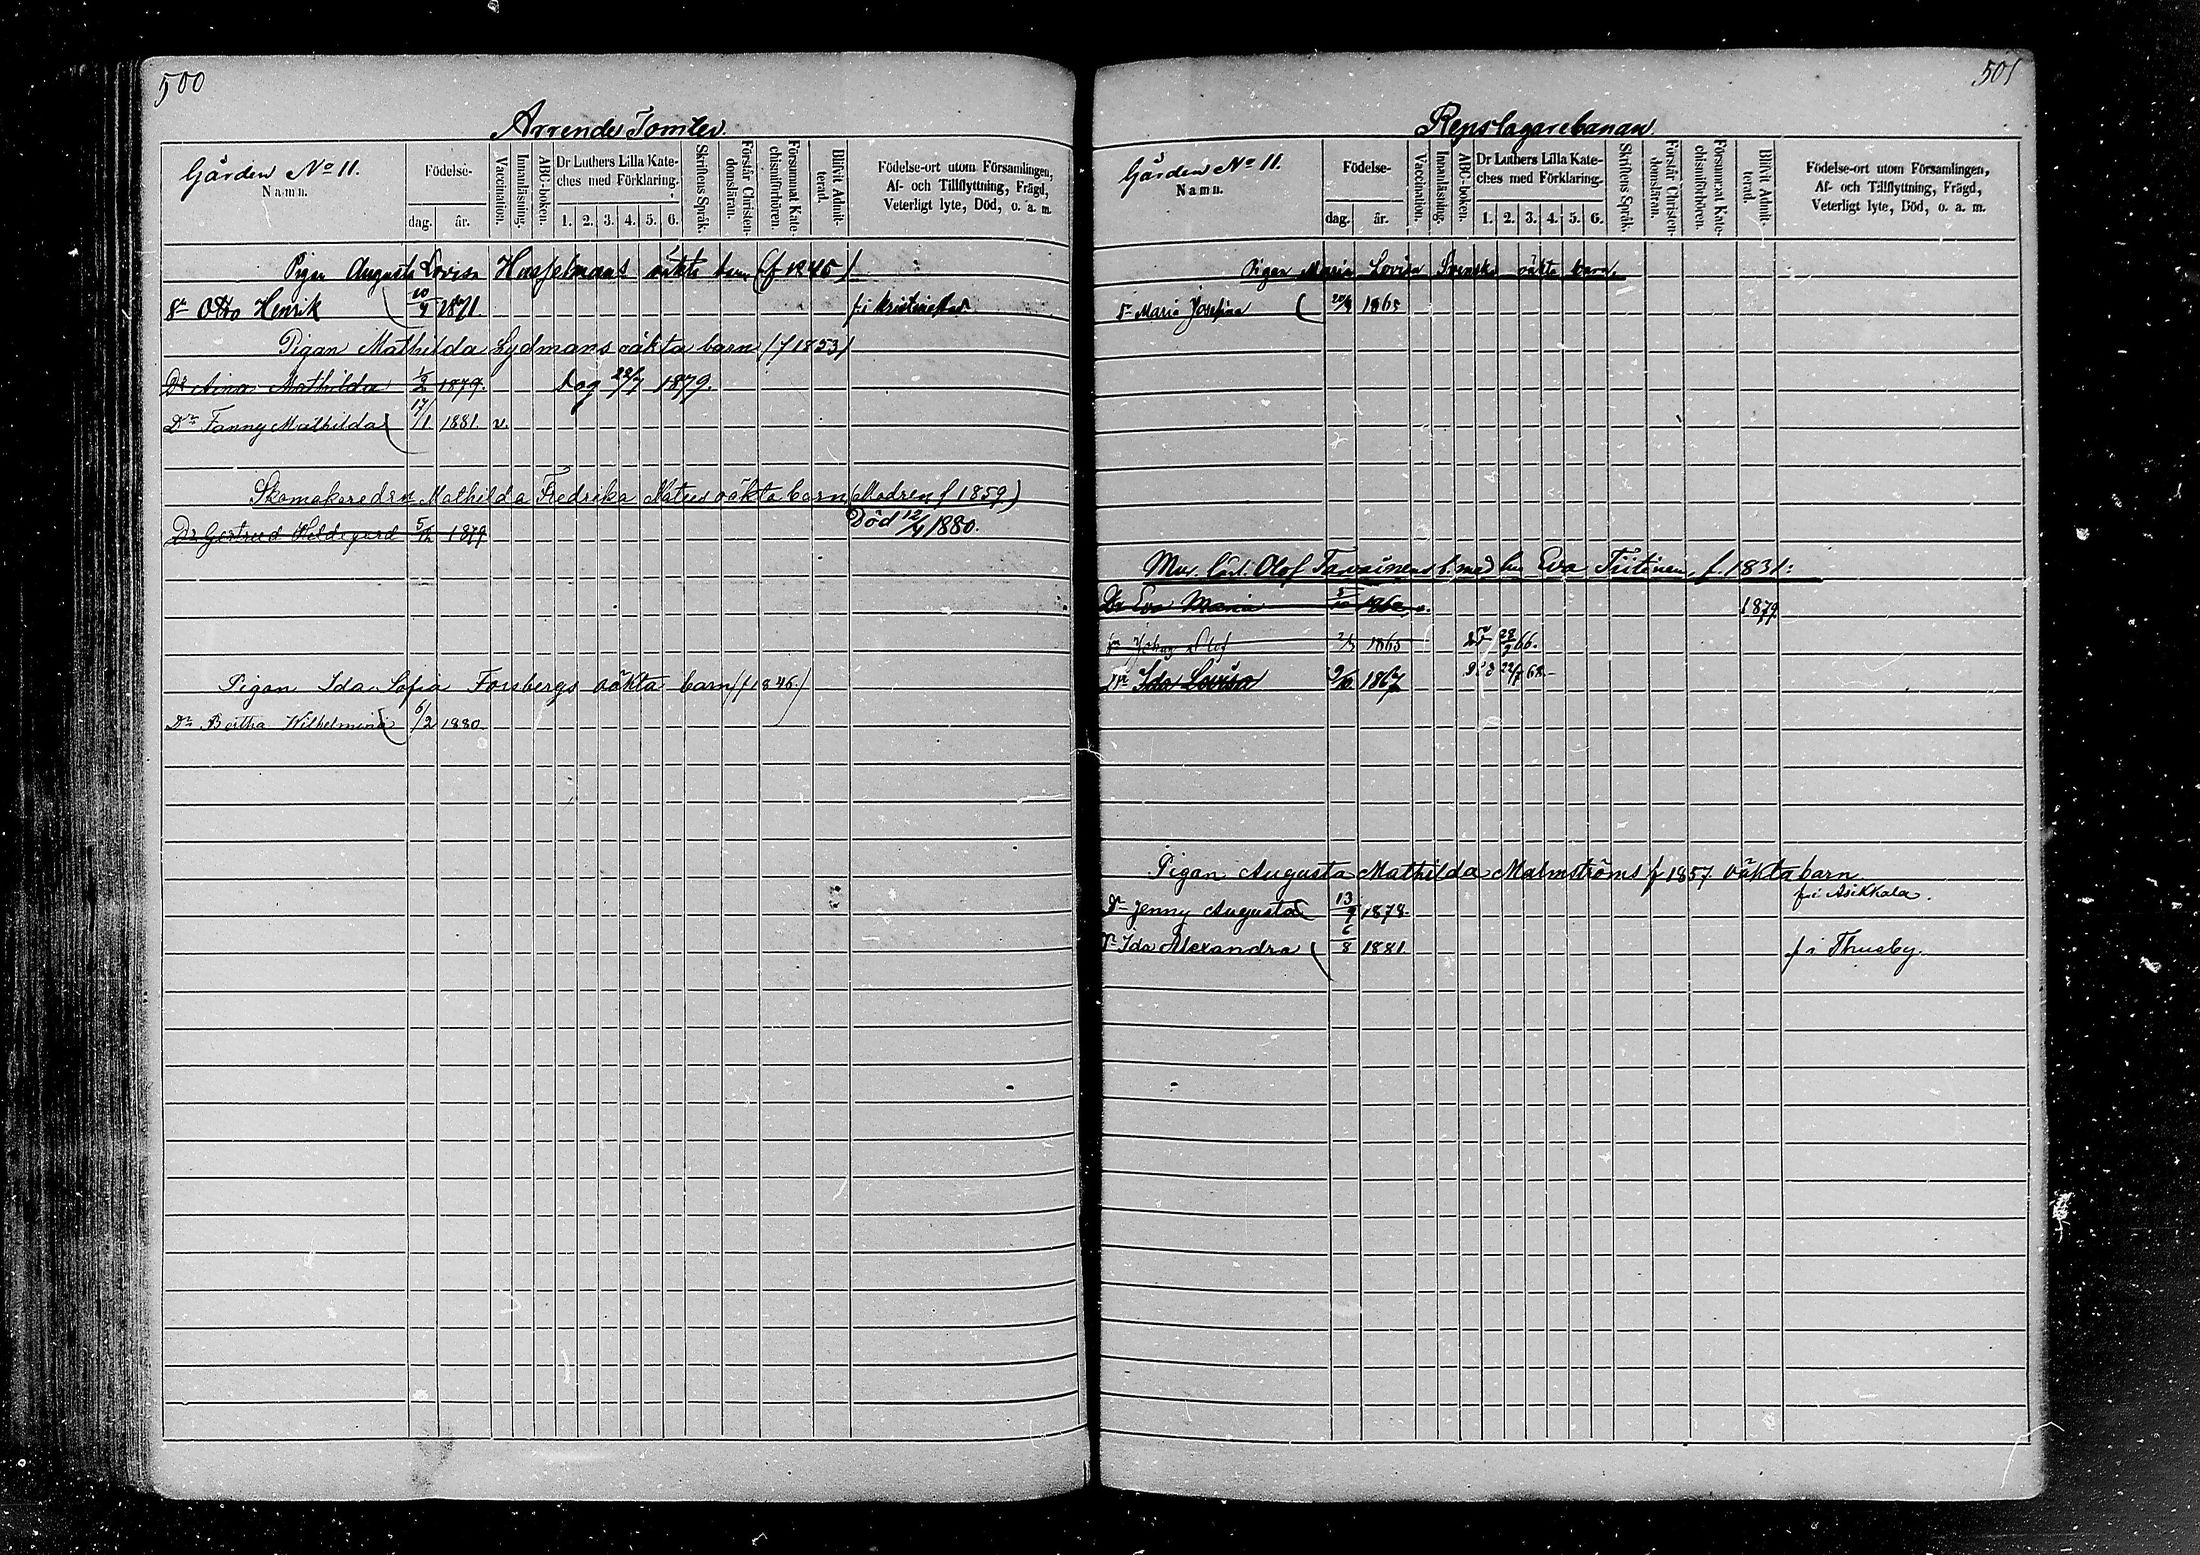 500
Arrende Tomter
Gården No 11.
Namn.
Födelse-
dag. år.
Vaccination.
Innanläsning.
ABC-boken.
Dr Luthers Lilla Kate-
ches med Förklaring.
1. 2. 3. 4. 5. 6.
Skriftens Språk.
Förstår Christen-
domsläran.
Försummat Kate-
chismiförhören.
Blifvit Admit-
terad.
Födelse-ort utom Församlingen,
Af- och Tillflyttning, Frägd,
Veterligt lyte, Död, o. a. m.
Pigan Augusta Lovisa Hasselmans oäkta barn (f 1845)
Sn Otto Henrik 20/9 1871. f. i Kristinestad
Pigan Mathilda Lydmans oäkta barn (f 1853)
Dr Aina Mathilda 1/2 1879. Dog 22/7 1879.
Dr Fanny Mathilda 17/1 1881. v.
Skomakaredrn Mathilda Fredrika oäkta barn (Modren f 1859)
Dr Gertrud Hildegard 1879 Död 12/4 1880.
Pigan Ida Sofia Forsbergs oäkta barn (f 1846.)
Dr Bertha Wilhelmina 6/2 1880
501
Repslagarebanan.
Gården No 11.
Namn.
Födelse-
dag. år.
Vaccination.
Innanläsning.
ABC-boken.
Dr Luthers Lilla Kate-
ches med Förklaring.
1. 2. 3. 4. 5. 6.
Skriftens Språk.
Förstår Christen-
domsläran.
Försummat Kate-
chismiförhören.
Blifvit Admit-
terad.
Födelse-ort utom Församlingen,
Af- och Tillflyttning, Frägd,
Veterligt lyte, Död, o. a. m.
Pigan Maria Lovisa Svensks oäkta barn.
Dr Maria Josefina 1865
Olof Tavainens b. med hu Eva Tiitinen, f. 1831:
Dr Eva Maria 1862 v. 1879
Sn Johan Olof 1865 66.
Dr Ida Lovisa 1867 Död 68.
Pigan Augusta Mathilda Malmströms f 1857 oäkta barn
Dr Jenny Augusta 13/9 1878. f. i Asikkala.
Dr Ida Alexandra 6/8 1881. f i Thusby.